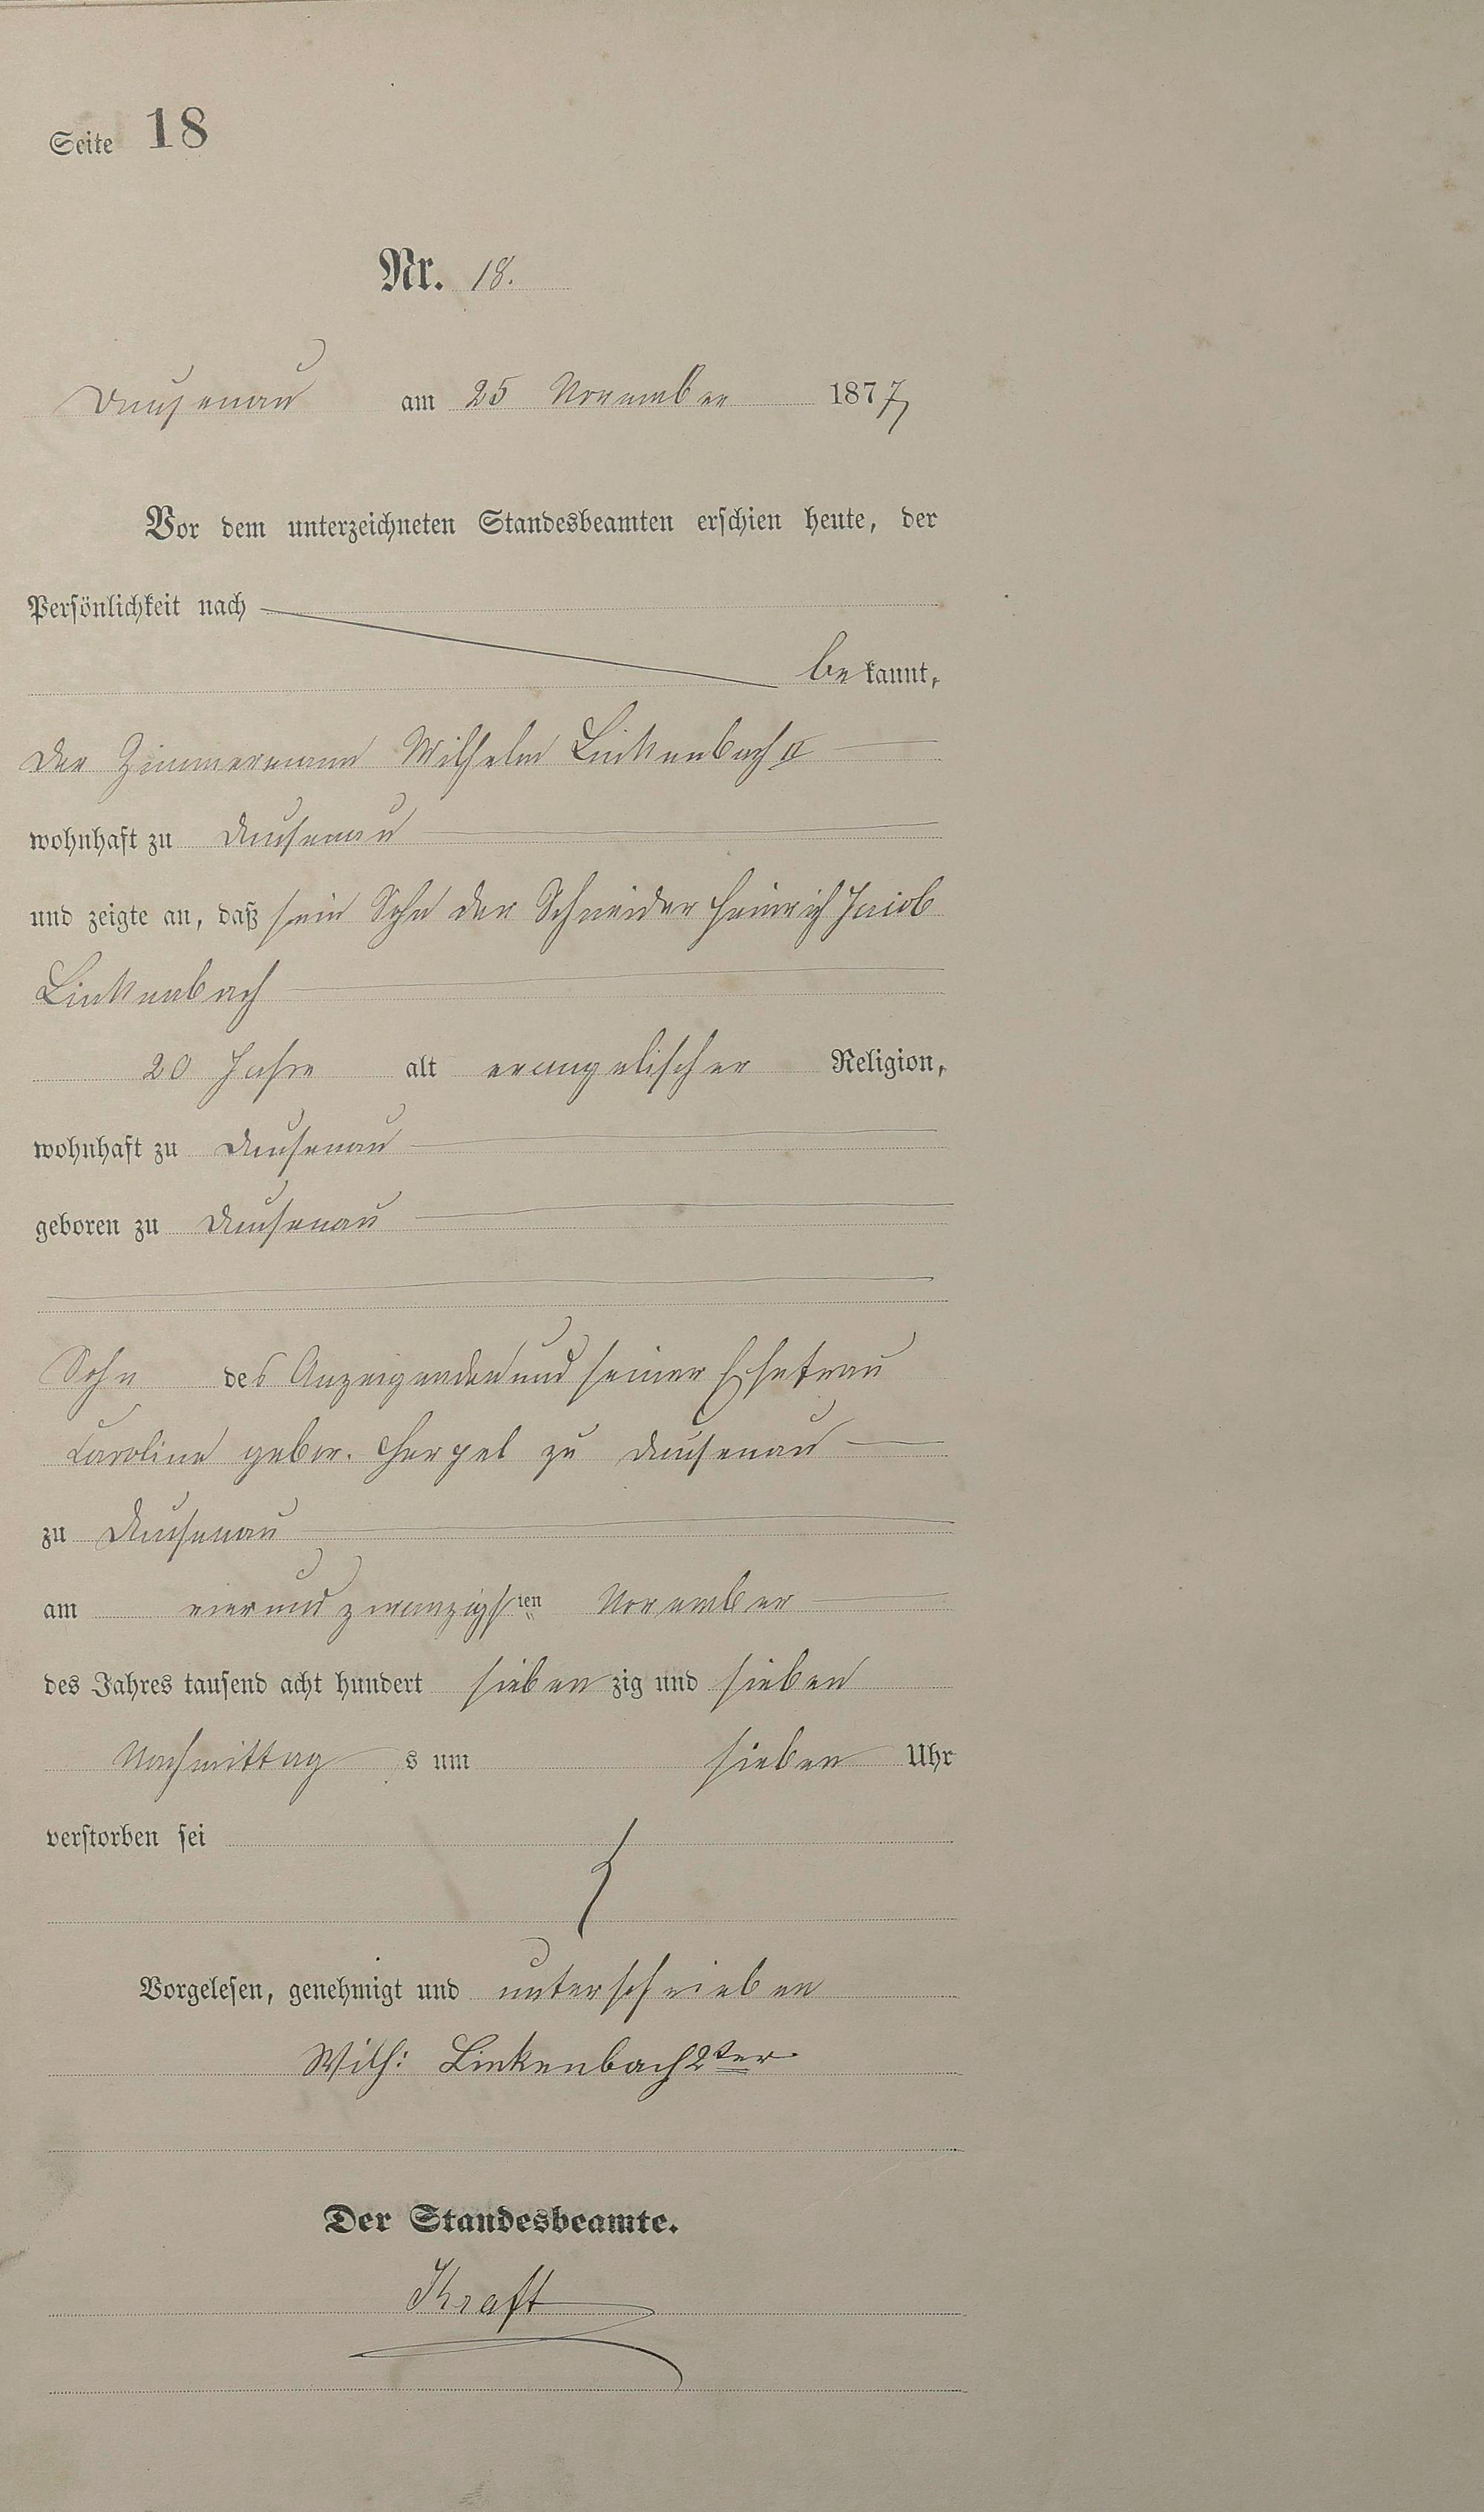 Seite 18
Nr. 18.
Dausenau am 25 November 1877
Vor dem unterzeichneten Standesbeamten erschien heute, der
Persönlichkeit nach
bekannt,
der Zimmermann Wilhelm Linkenbach II
wohnhaft zu Dausenau
und zeigte an, daß sein Sohn der Schneider Heinrich Jacob
Linkenbach
20 Jahre alt evangelischer Religion,
wohnhaft zu Dausenau
geboren zu Dausenau
Sohn des Anzeigenden und seiner Ehefrau
Caroline gebor. Hergel zu Dausenau
zu Dausenau
am vierundzwanzigsten November
des Jahres tausend acht hundert siebenzig und sieben
Nachmittags um sieben Uhr
verstorben sei
Vorgelesen, genehmigt und unterschrieben
Wilh: Linkenbach 2ter
Der Standesbeamte.
Kraft